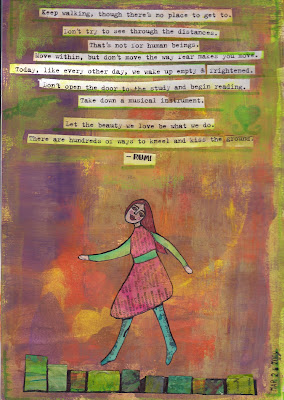 Keep walking, though there's no place to get to.
Don't try to see through the distances.
That's not for human beings.
Move within, but don't move the way fear makes you move.
Today, like every other day, we wake up empty & frightened.
Don't open the door to the study and begin reading.
Take down a musical instrument.
Let the beauty we love be what we do.
There are hundreds of ways to kneel and kiss the ground.
- RUMI